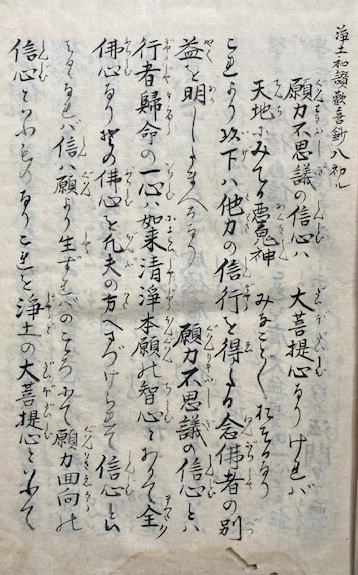 浄土和讃歓喜鈔八初ル
願力不思議の信心ハ 大菩提心なりけれバ
天地にみてる悪鬼神 みなことごとくおそるなり
これより以下ハ他力の信行を得たる念佛者の別
益を明したまへるなり 願力不思議の信心とハ
行者歸命の一心ハ如来清浄本願の智心にして全
佛心なりその佛心を凡夫の方へさづけられて信心とハ
なるなれバ信ハ願より生ずれバのこころにて願力回向の
信心といふものなりこれを浄土の大菩提心といふて